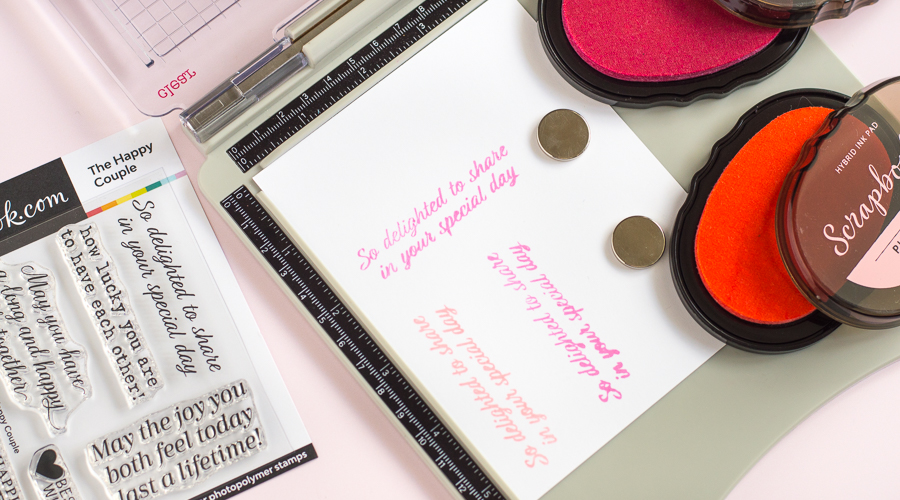 clear
The Happy
Couple
ok.com
So delighted to share
in your special day
how lucky you are
to have each other!
May you have
a long and happy
together
May the joy you
both feel today
last a lifetime!
photopolymer stamps
Happy Couple
BES
So delighted to share
in your special day
So delighted to share
in your special day
So delighted to share
in your special day
HYBRID INK PAD
Scrapbo